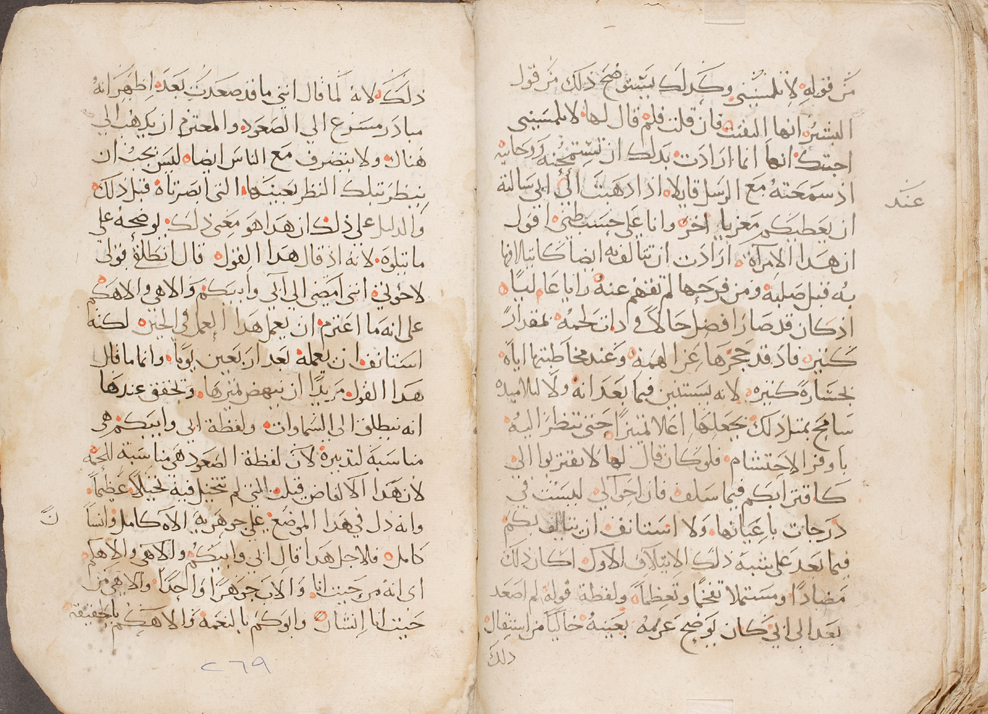 من قوله لا تلمسيني وكذلك يستوضح ذلك من قول
البشير انها التفت فان قلت فلم قال لها لا تلمسيني
اجبتك انها انما ارادت بذلك ان تستمحنه ورجا به
اذ سمعته مع الرسل قايلا اذا ذهبت الى ابي سالته
عند
ان يعطيكم معزيا اخر وانا على حسب ظني اقول
ان هذا الامرآة ارادت ان تتالف به ايضا كاتتلافها
به قبل صلبه ومن فرحها لم تفهم عنه رايا عاليا
اذ كان قد صار افضل حالا في ذات لحمه بمقدار
كثير فاذ قد حجرها عن هذا الهمة وعند مخاطبتها اياه
بجسارة كثيره لانه ليستبين فيما بعد انه ولا لتلاميذه
سامح بمثل ذلك جعلها اعلا تمييزا حتى تنظر اليه
باوفر الاحتشام فلو كان قال لها لا تقتربوا الي
كاقترابكم فيما سلف فان احوالي ليست في
درجات باعيانها ولا استانف ان يتالف بكم
فيما بعد على شبه ذلك الايتلاف الاول لكان ذلك
مضادا ومستملا تفخما وتعظما ولفظة قوله لم اصعد
بعد الى ابي كان يوضح عزمه بعينه خاليا من استثقال
ذلك
ذلك لانه لما قال انني ما قد صعدت بعد اظهر انه
مبادر مسرع الى الصعود والمعتزم ان يذهب الى
هناك ولا يتصرف مع الناس ايضا ليس يجب ان
ينظر تلك النظر بعينها التي ابصرتاه قبل ذلك
والدليل على ذلك ان هذا هو معنى ذلك توضحه على
ما تتلوه لانه اذ قال هذا القول قال انطلقي قولي
لاخوتي انني امضي الى ابي وابيكم والاهي والاهكم
على انه ما اعتزم ان يعمل هذا العمل في الحين لكنه
استانف ان يعمله بعد اربعين يوما وانما قال
هذا القول مريدا ان ينهض تمييزها وتحقق عندها
انه ينطلق الى السماوات ولفظة ابي وابيكم هي
مناسبة لتدبيره لان لفظة الصعود هي مناسبة للحمه
لان هذا الالفاض قيلت التي لم تتخيل فيه تخيلا عظما
ن
وانه دل في هذا الموضع على جوهريه الاه كامل وانسا
كامل فلاجل هذا قال ابي وابيكم والاهي والاهكم
اي انه من حيث انا والاب جوهرا واحدا والاهي من
حيث انا انسان وابوكم بالنعمه والاهكم بالحقيقه
٢٦٩